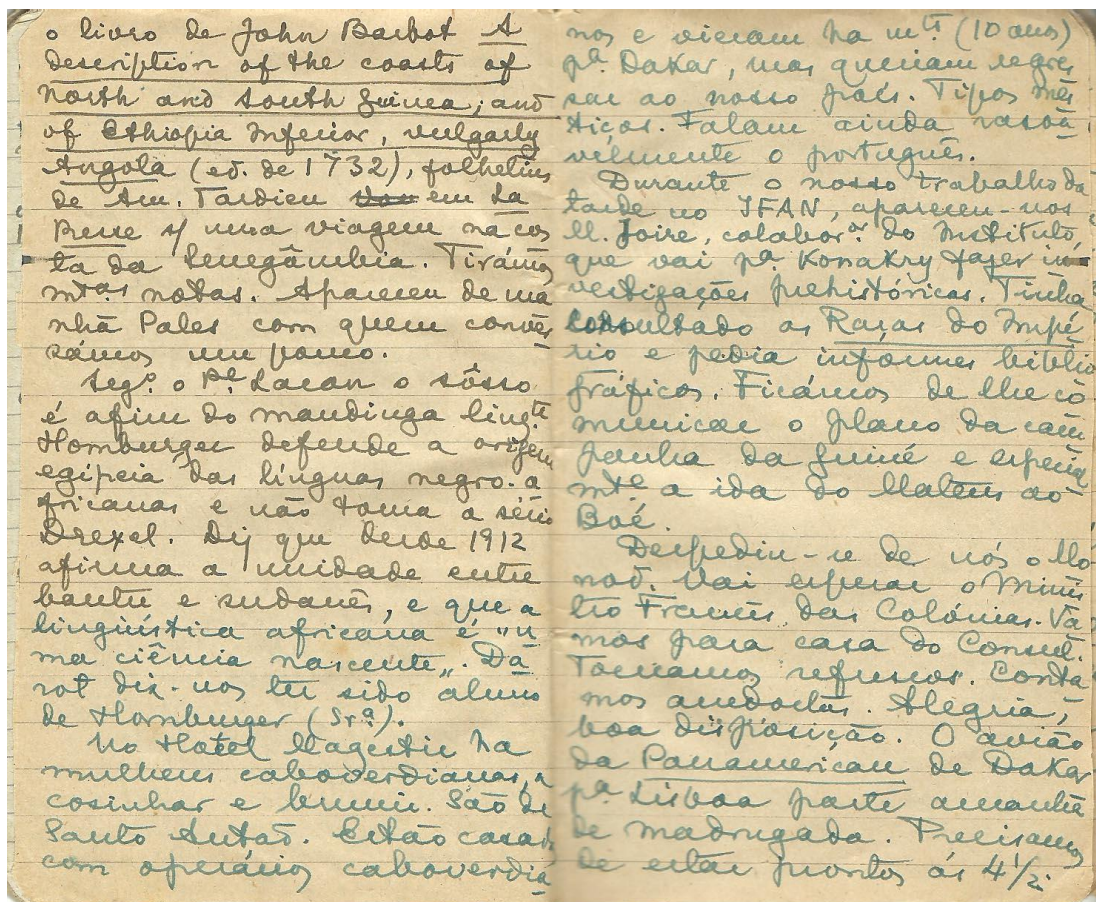 o livro de John Barbot A
description of the coasts of
North and South Guinea; and
of Ethiopia Inferior, vulgarly
Angola (ed. de 1732), folhetins
de Am. Tardieu em La
Presse s/ uma viagem na cos
ta da Senegâmbia. Tirámos
mtas notas. Apareceu de ma
nhã Pales com quem conver
sámos um pouco.
Segº. o Pe. Lacan o sôsso
é afim do mandinga lingte.
Homburger defende a origem
egípcia das línguas negro-a
fricanas e não toma a sério
Drexel. Diz que desde 1912
afirma a unidade entre
bantu e sudanês, e que a
lingüística africana é "u
ma ciência nascente". Da
rot diz-nos ter sido aluno
de Homburger (Srª.).
No Hotel Magestic ha
mulheres caboverdianas, a
cosinhar e brunir. São de
Santo Antão. Estão casadas
com operários caboverdia
nos e vieram ha mto. (10 anos)
pª. Dakar, mas queriam regres
sar ao nosso país. Tipos mes
tiços. Falam ainda rasoà
velmente o português.
Durante o nosso trabalho da
tarde no IFAN, apareceu-nos
M. Joire, colaboror. do Instituto,
que vai pª. Konakry fazer in
vestigações prehistóricas. Tinha
consultado as Raças do Impé
rio e pedia informes biblio
gráficos. Ficámos de lhe co
municar o plano da cam
panha da Guiné e especial
mte. a ida do Mateus ao
Boé.
Despediu-se de nós o Mo
nod. Vai esperar o Minis
tro Francês das Colónias. Va
mos para casa do Consul.
Tomamos refrescos. Conta
mos anedotas. Alegria,
boa disposição. O avião
da Panamerican de Dakar
pª Lisboa parte amanhã
de madrugada. Precisamos
de estar prontos ás 4 1/2.